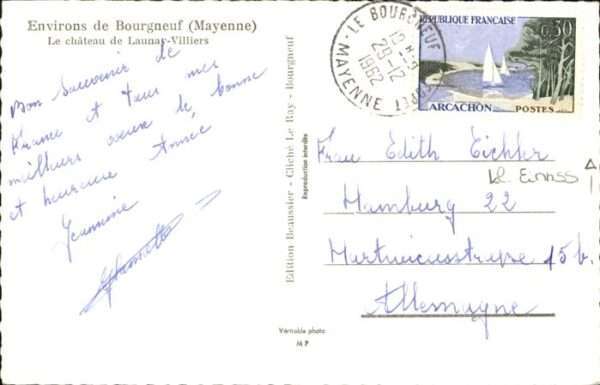 Environs de Bourgneuf (Mayenne)
Le château de Launay-Villiers
Bon Souvenir de
France et tous mes
meilleurs vœux de bonne
et heureuse Année
Jeannine
Edition Beaussier - Cliché Le Ray - Bourgneuf
Reproduction interdite
Véritable photo
M P
LE BOURGNEUF
28-12
1962
MAYENNE
REPUBLIQUE FRANÇAISE
0,30
ARCACHON
POSTES
Frau Edith Eichler
Hamburg 22
15 b.
Allemagne